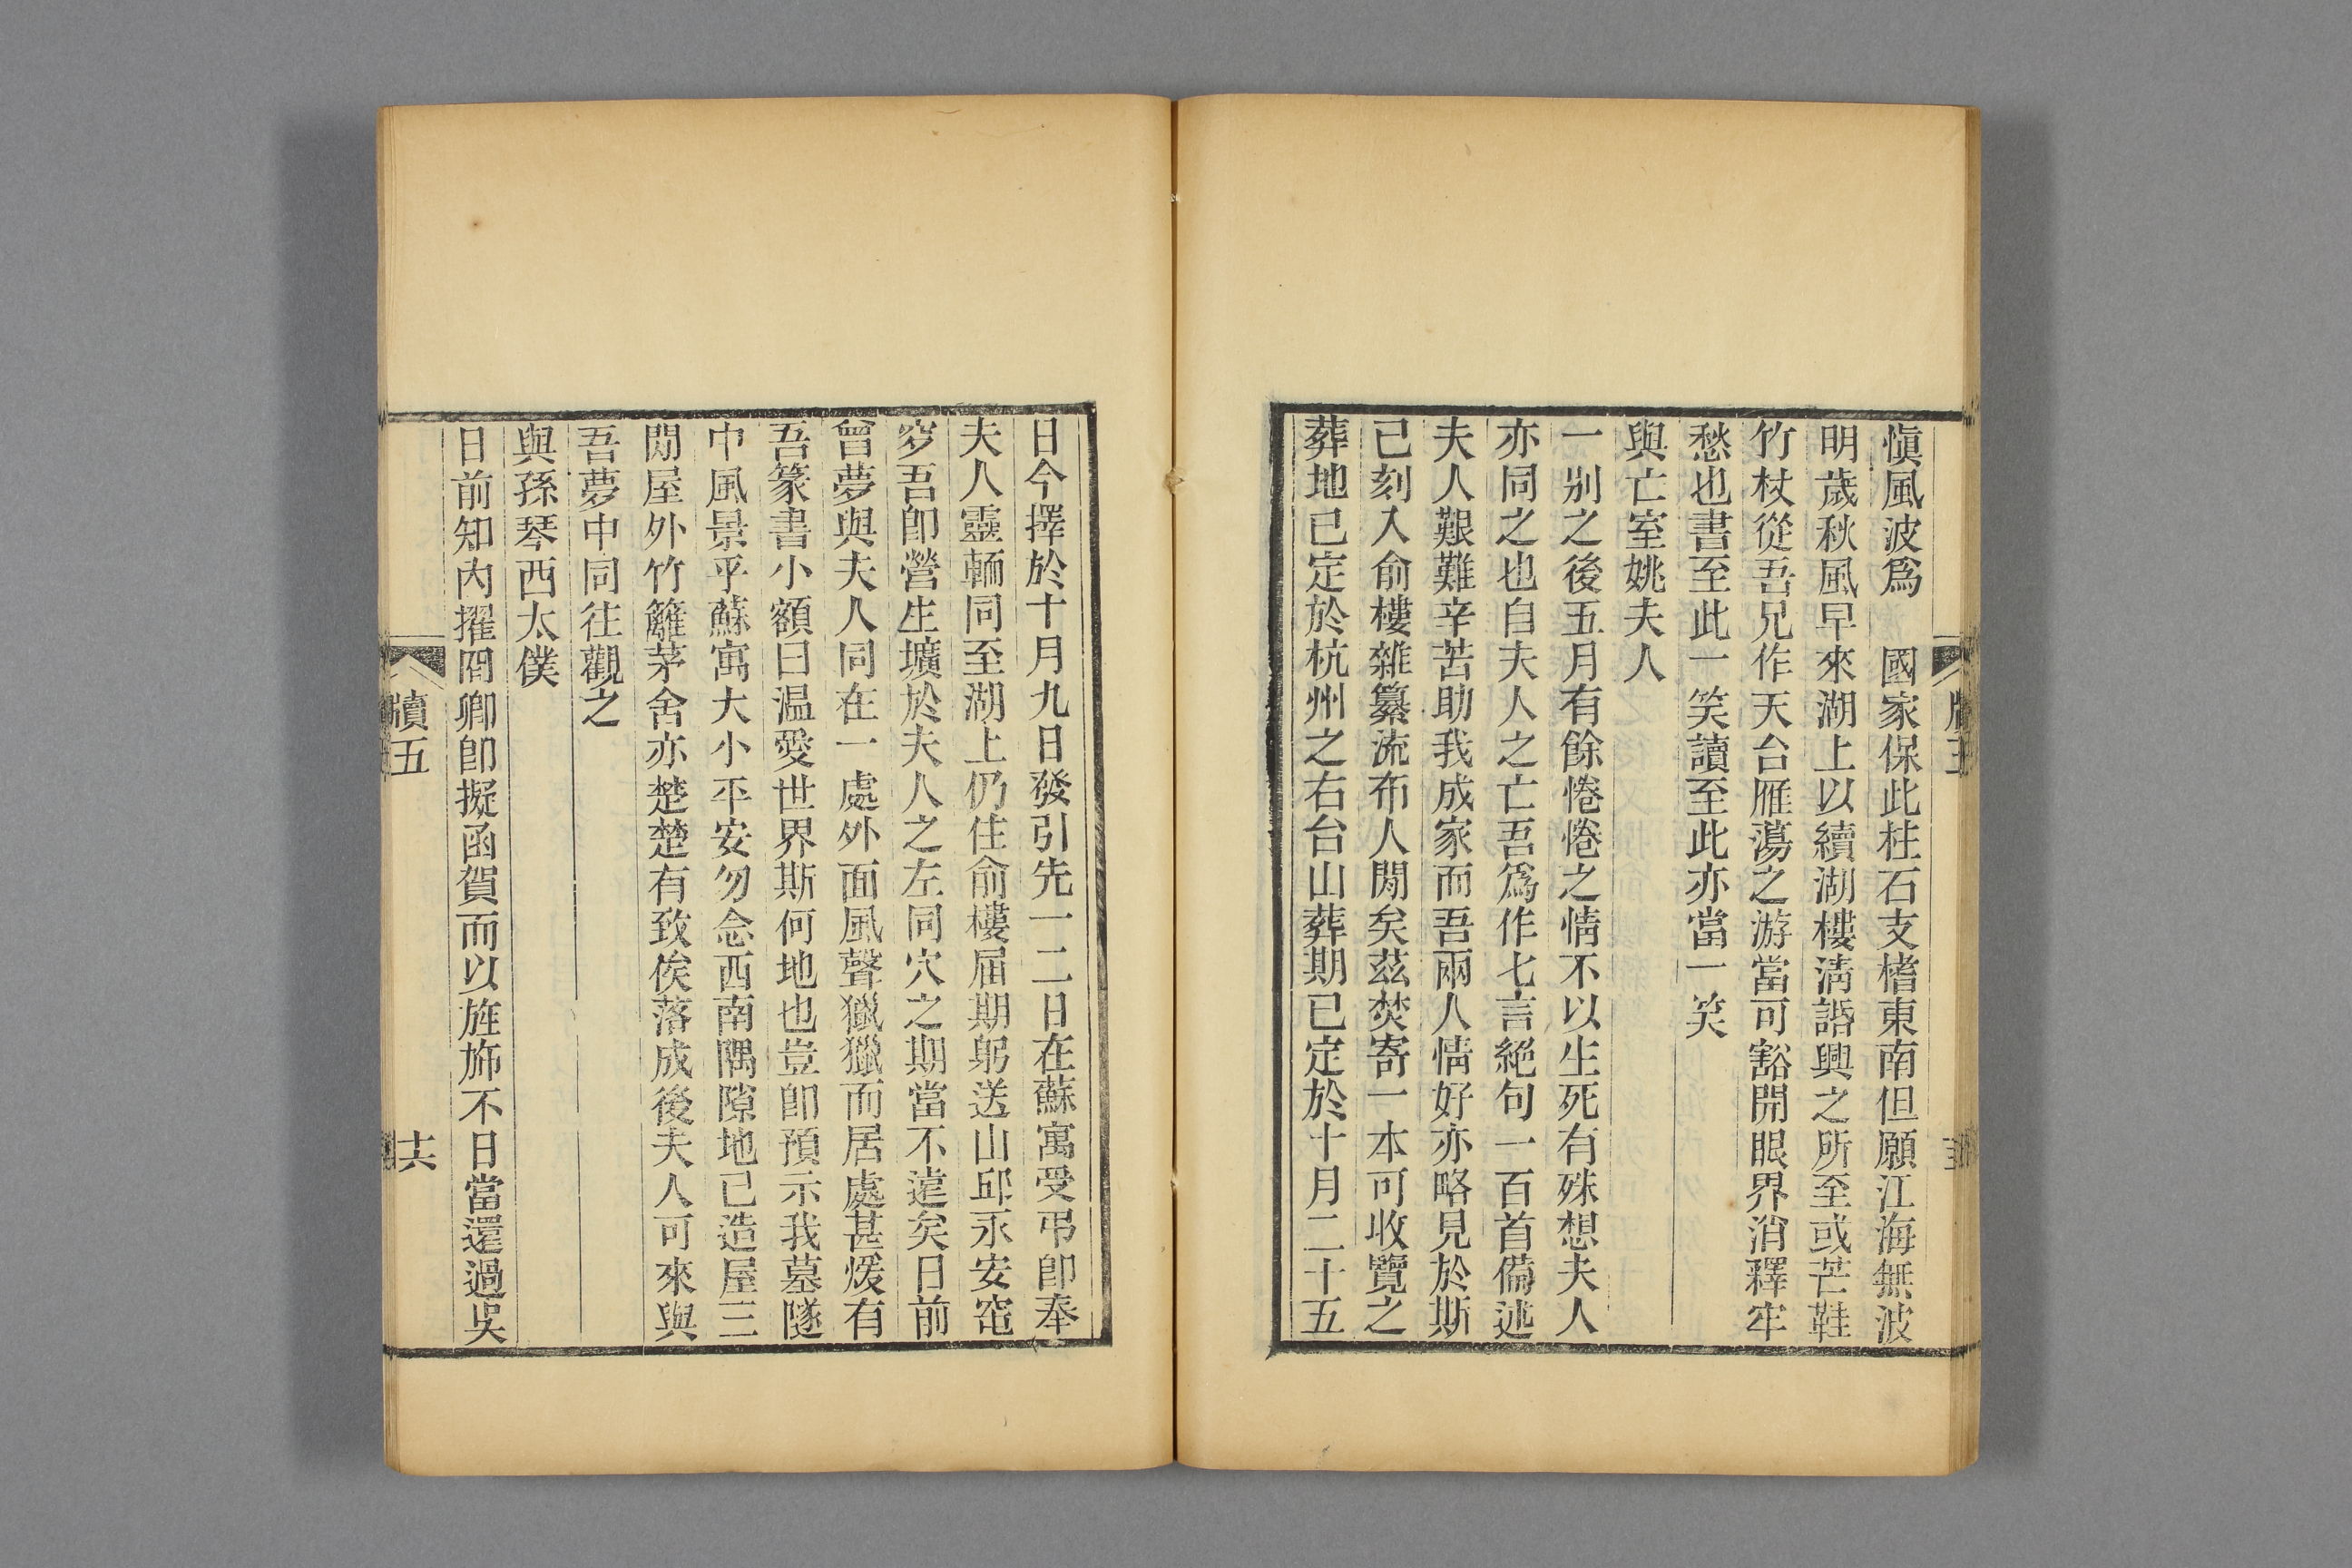 愼風波爲　國家保此柱石支榰東南但願江海無波
明歲秋風早來湖上以續湖樓淸譛興之所至或芒鞋
竹杖從吾兄作天台雁蕩之游當可豁開眼界消釋牢
愁也書至此一笑讀至此亦當一笑
與亡室姚夫人
一別之後五月有餘惓惓之情不以生死有殊想夫人
亦同之也自夫人之亡吾爲作七言絕句一百首備述
夫人艱難辛苦助我成家而吾兩人情好亦略見於斯
已刻入俞樓雜纂流布人閒矣茲焚寄一本可收覽之
葬地已定於杭州之右台山葬期已定於十月二十五
日今擇於十月九日發引先一二日在蘇寓受弔卽奉
夫人靈輀同至湖上仍住俞樓屆期躬送山邱永安窀
穸吾卽營生壙於夫人之左同穴之期當不遠矣日前
曾夢與夫人同在一處外面風聲獵獵而居處甚煖有
吾篆書小額曰温愛世界斯何地也豈卽預示我墓隧
中風景乎蘇寓大小平安勿念西南隅隙地已造屋三
閒屋外竹籬茅舍亦楚楚有致俟落成後夫人可來與
吾夢中同往觀之
與孫琴西太僕
日前知內擢冏卿卽擬函賀而以旌旆不日當還過吳
牘五
十六